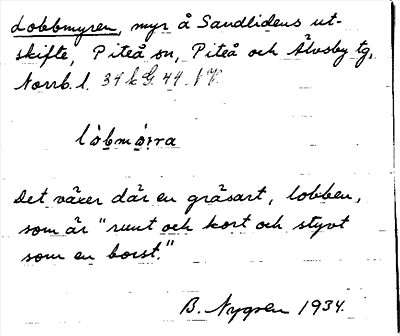 Lobbmyren, myr å Sandlidens ut-
skifte, Piteå sn, Piteå och Älvsby tg,
Norrb. l. 34 k G. 44. NV.
Det växer där en gräsart, lobben,
som är "runt och kort och styvt
som en borst."
B. Nygren 1934.